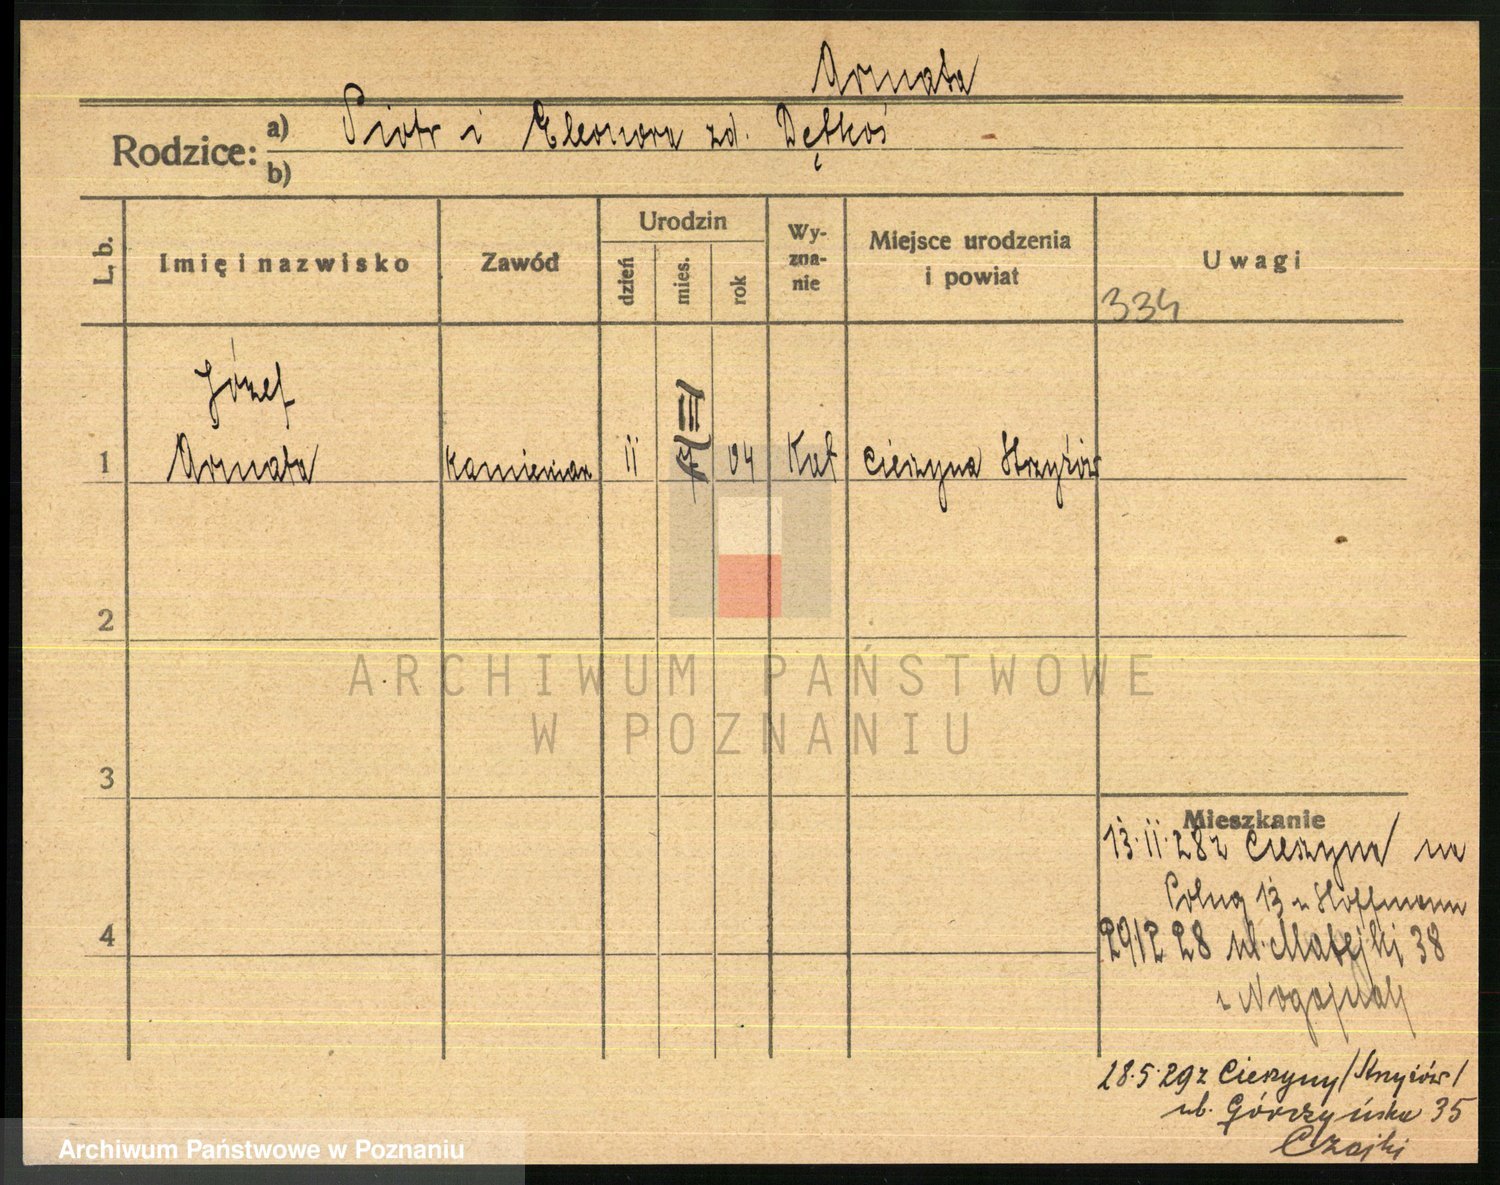 Armata
Rodzice: a) Piotr i Eleonora zd. Dętkoś
b)
L. b.
Imię i nazwisko
Zawód
Urodzin
dzień
mies.
rok
Wy-
zna-
nie
Miejsce urodzenia
i powiat
Uwagi
334
Józef
1 Armata kamieniarz 11 04 Kat Cieszyna Strzyżów
2
ARCHIWUM PAŃSTWOWE
W POZNANIU
3
Mieszkanie
13.11.28 z Cieszyna na
Polną 13 u Hoffmann
4
29/12 28 ul. Matejki 38
28.5.29 z Cieszyny /Strzyżów/
ul. Górczyńska 35
Czajki
Archiwum Państwowe w Poznaniu